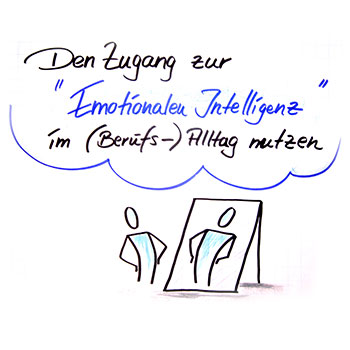 Den Zugang zur
"Emotionalen Intelligenz"
im (Berufs-) Alltag nutzen